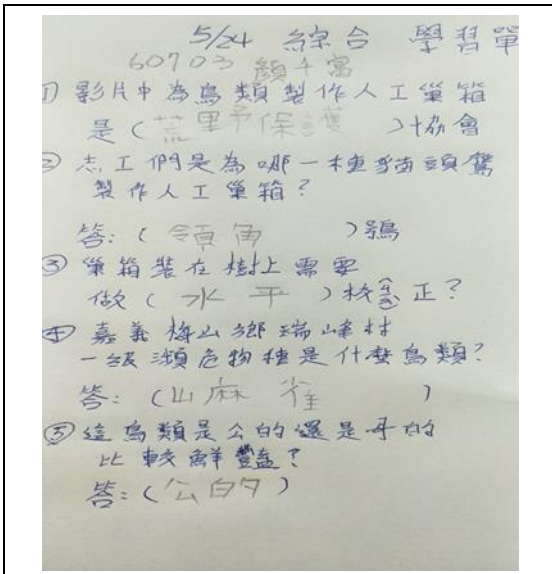 5/24 綜合 學習單
60703 顏千
① 影片中為鳥類製作人工巢箱
是（荒野保護）協會
② 志工們是為哪一種貓頭鷹
製作人工巢箱？
答:（領角）鴞
③ 巢箱裝在樹上需要
做（水平）校正？
④ 嘉義梅山鄉瑞峰村
一級瀕危物種是什麼鳥類？
答:（山麻雀）
⑤ 這鳥類是公的還是母的
比較鮮豔？
答:（公的）